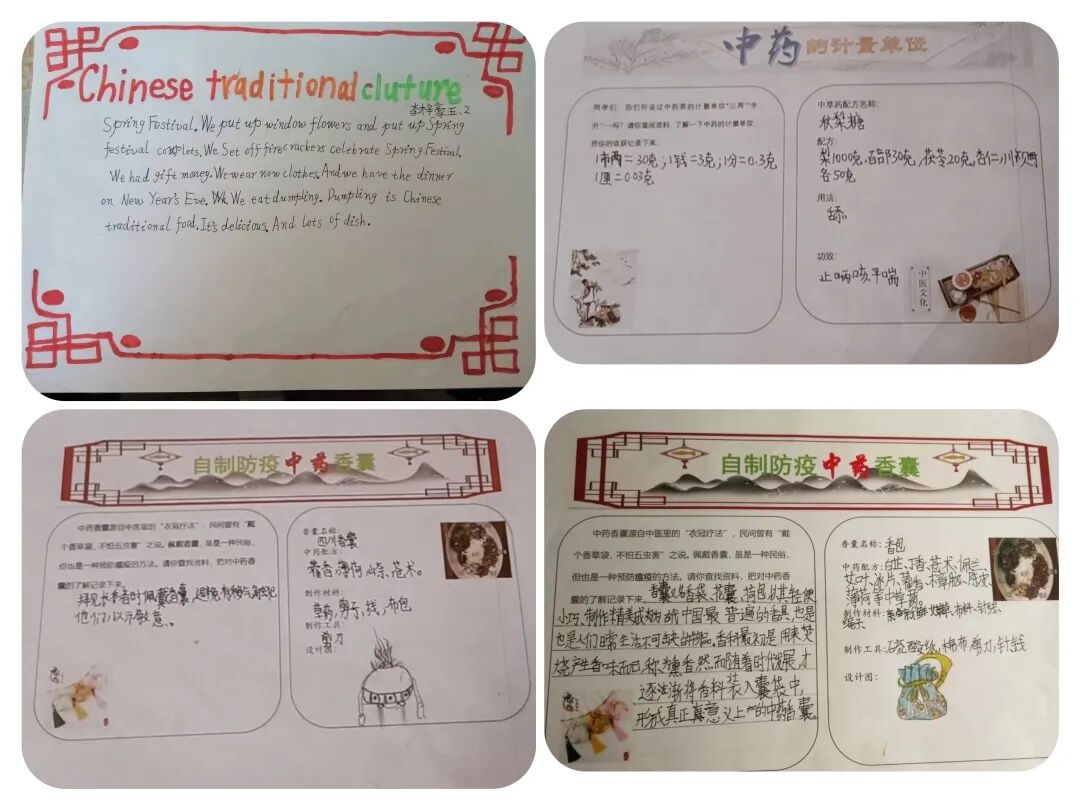 Chinese traditional cluture
李梓豪 五.2
Spring Festival. We put up window flowers and put up Spring
festival couplots. We Set off firecrackers celebrate Spring Festival.
We had gift money. We wear now clothes. And we have the dinner
on New Year's Eve. We eat dumpling. Dumpling is Chinese
traditional food. It's delicious. And lots of dish.
中药的计量单位
同学们，你们听说过中药里的计量单位"三两""半
升"……吗？请你查阅资料，了解一下中药的计量单位，
把你的收获记录下来。
1市两=30克；1钱=3克；1分=0.3克
1厘=0.03克
中草药配方名称：
秋梨糖
配方：
梨1000克，30克，茯苓20克，杏仁、川贝
各50克
用法：
舔
功效：
止咳平喘
中医文化
自制防疫中药香囊
中药香囊源自中医里的"衣冠疗法"，民间曾有"戴
个香草袋，不怕五虫害"之说。佩戴香囊，虽是一种民俗，
但也是一种预防瘟疫的方法。请你查找资料，把对中药香
囊的了解记录下来。
拜见长辈者时佩戴香囊，避免有秽气
他们，以示敬意。
香囊名称：
四川香囊
中药配方：
藿香、薄荷、山奈、苍术。
制作材料：
草药，剪子，线，布包
制作工具：
剪刀
设计图：
自制防疫中药香囊
中药香囊源自中医里的"衣冠疗法"，民间曾有"戴
个香草袋，不怕五虫害"之说。佩戴香囊，虽是一种民俗，
但也是一种预防瘟疫的方法。请你查找资料，把对中药香
囊的了解记录下来。
香囊又名香袋、花囊、荷包，以其轻便
小巧，制作精美成为中国最普遍的香具，也是
也是人们日常生活不可缺的物品。香料最初是用来焚
烧产生香味而已，称为熏香，然而随着时代发展，才
逐渐将香料装入囊袋中，
形成真正意义上的中药香囊。
香囊名称：香包
中药配方：白芷、丁香、苍术、佩兰、
艾叶、冰片、藿香、樟脑、陈皮、
薄荷等中草药。
制作材料：布料、针线、
绳子
制作工具：硫酸纸，棉布，剪刀，针线
设计图：